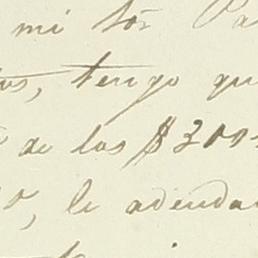 mi Sor Pa
tos, tengo qu
de las $300
o, le adeuda